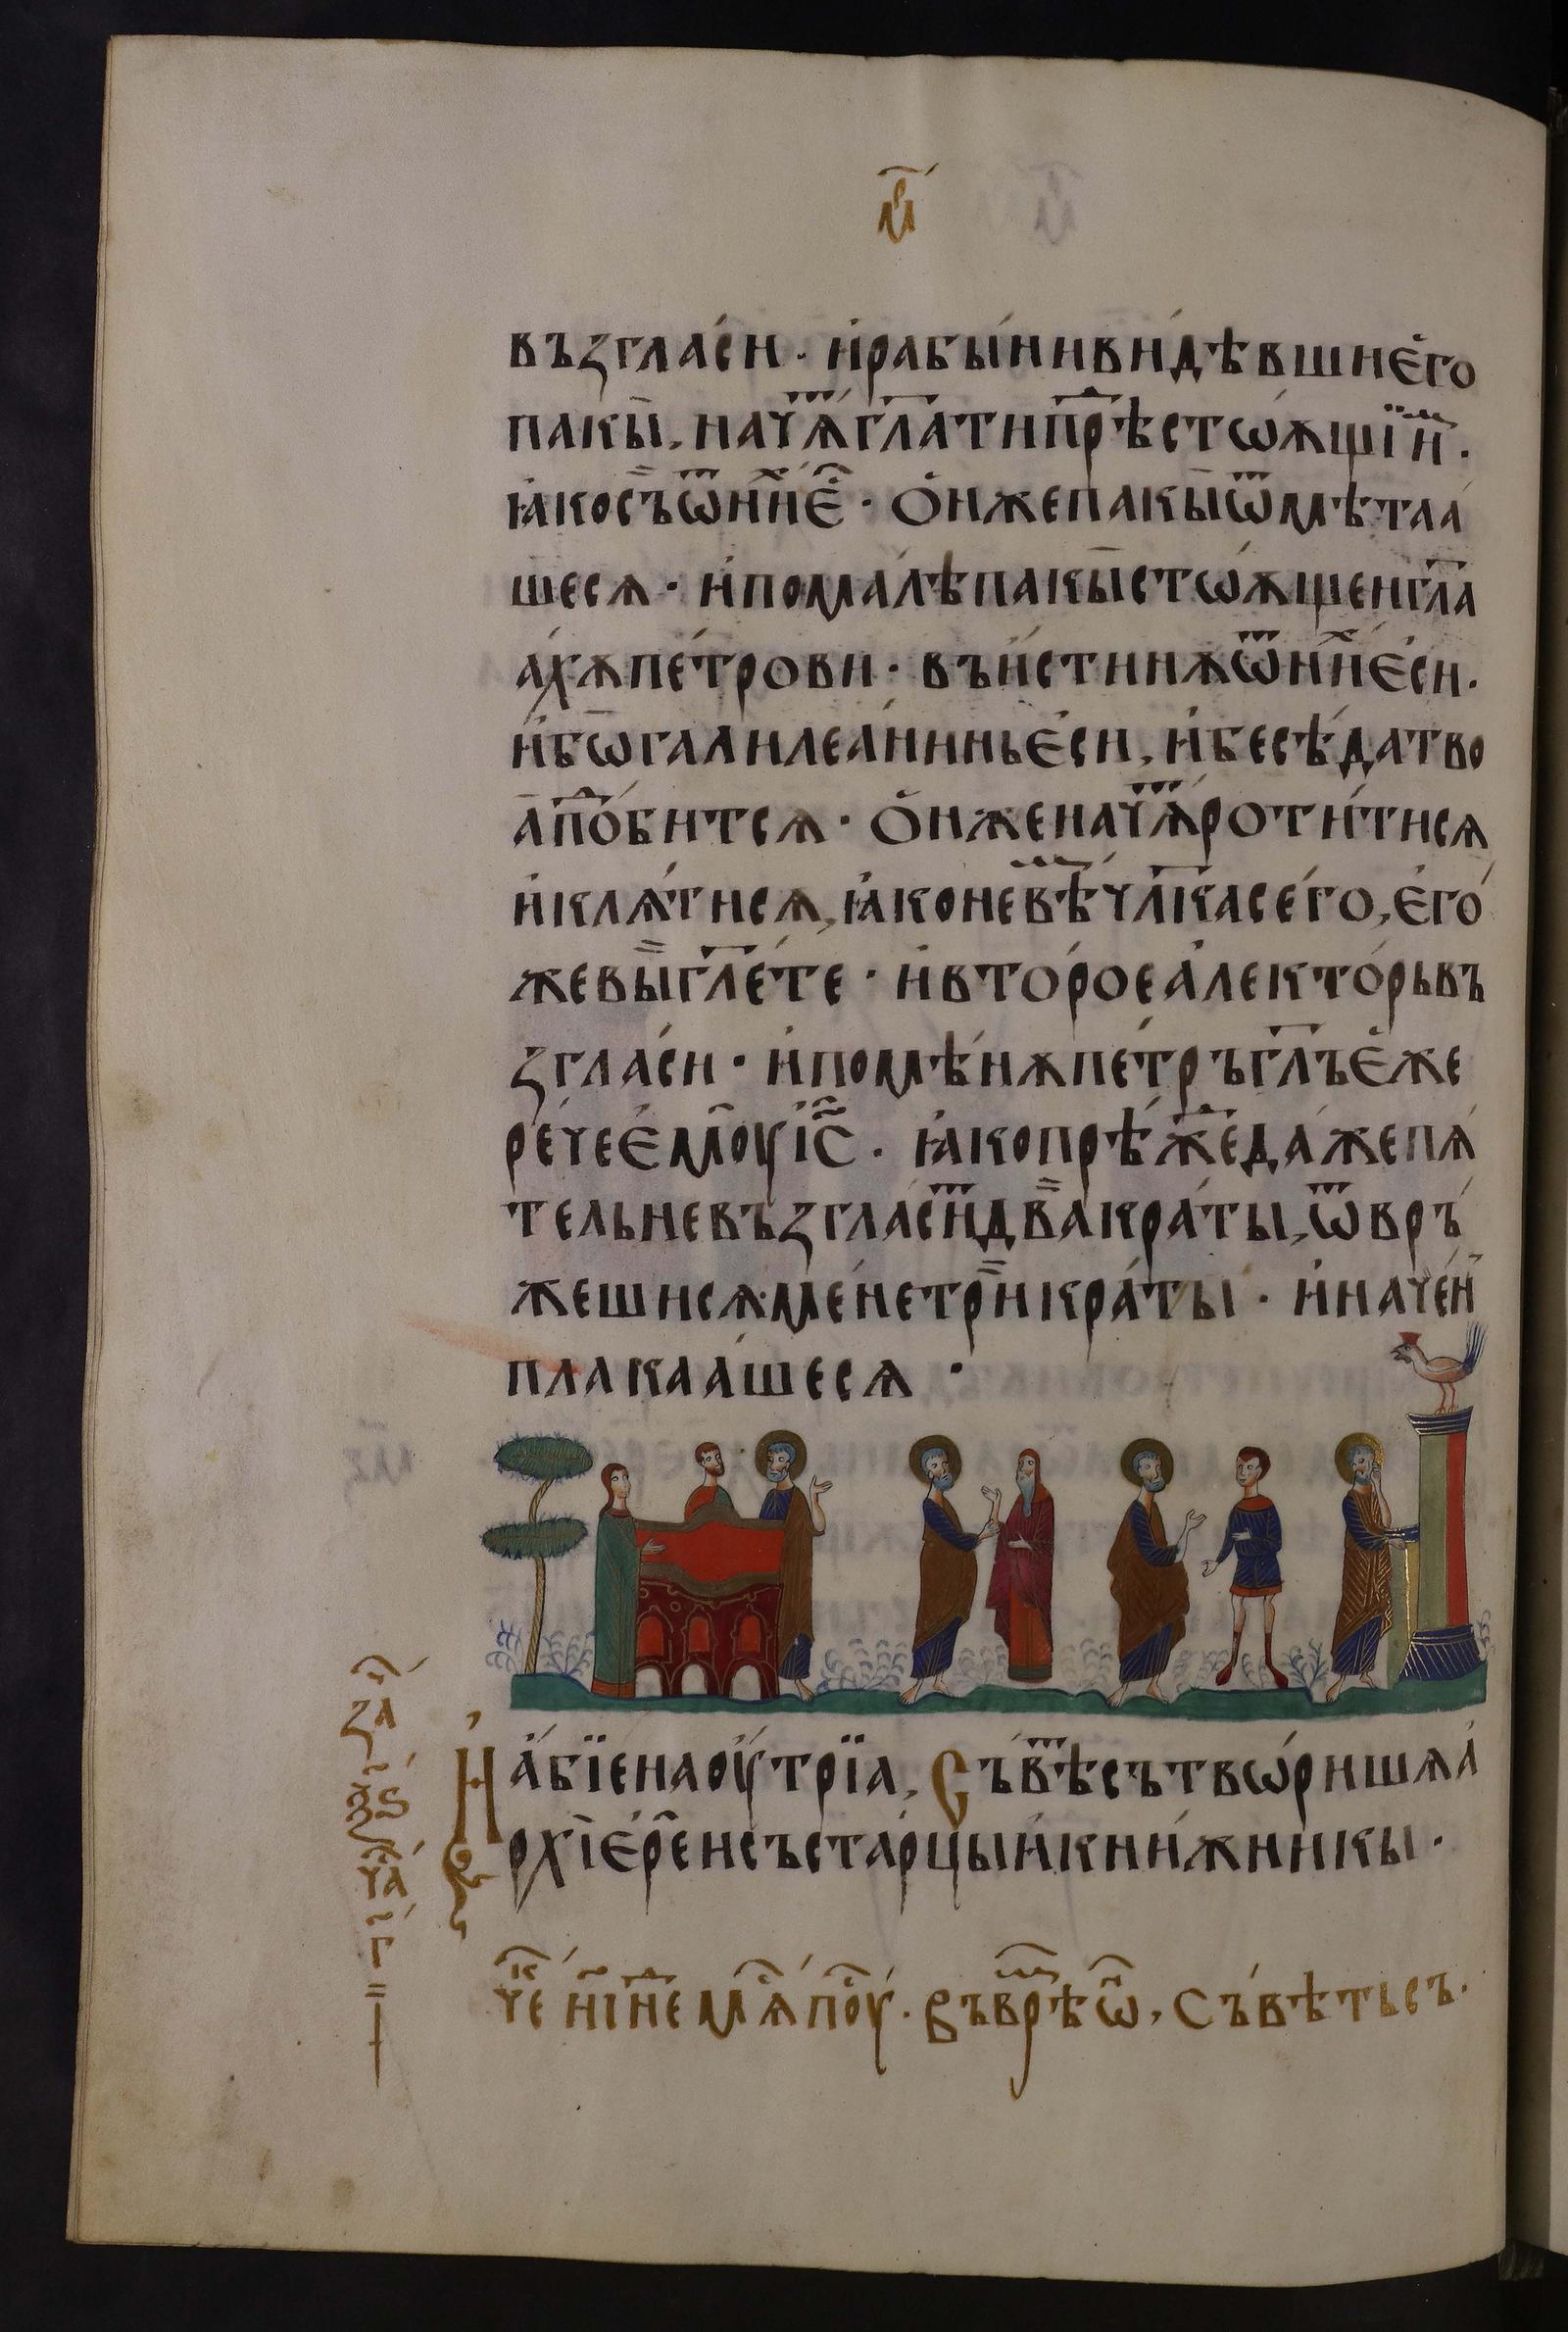 м҃
възгласи · и҆рабы́ни види́ѣвши е҆го
пакы, начѧ́ гл҃ати прⷣѣстоѧщїи҆мⷨ ·
ꙗ҆ко съ ѿ ни́хⷯ є҆ⷭ · ѻ҆н же пакы ѿмѣтаа
шесѧ · и҆ по малѣ пакы стѡѧщеи гл҃а
а́хѫ пе́трови · въ и҆стинѫ ѿ ни́хⷯ є҆си ·
и҆бѡ галилеа́нинь є҆си, и҆ бесѣ́да тво
а̀ пⷣо́битсѧ · ѻ҆н же начѧ́ роти́тисѧ
и҆ клѧ́тисѧ, ꙗ҆ко не вѣⷨ чл҃ка сего, є҆го
же вы гл҃е́те · и҆ второ́е а҆лекторь въ
згласи · и҆ помѣнѫ пе́тръ гл҃ъ є҆же
ре́че є҆моу і҆с҃ · ꙗ҆ко прѣ́жⷣе да́же пѧ́
тель не възгласитⷮ два кра́ты, ѿвръ́
жешисѧ мене три кра́ты · и҆ наче́нь
плакаа́шесѧ ·
И҆ а҆бїе на оу́трїа, Съвѣⷮ сътвѡ́ришѧ а҆
рхїере́и съ ста́рцы и҆ кни́жникы ·
за҃
ѯ҃ѕ
ча
г҃
чⷮе нїⷣне мѧⷭ пⷭоу · въ врⷨѣ ѡⷩ, съвѣть съ ·